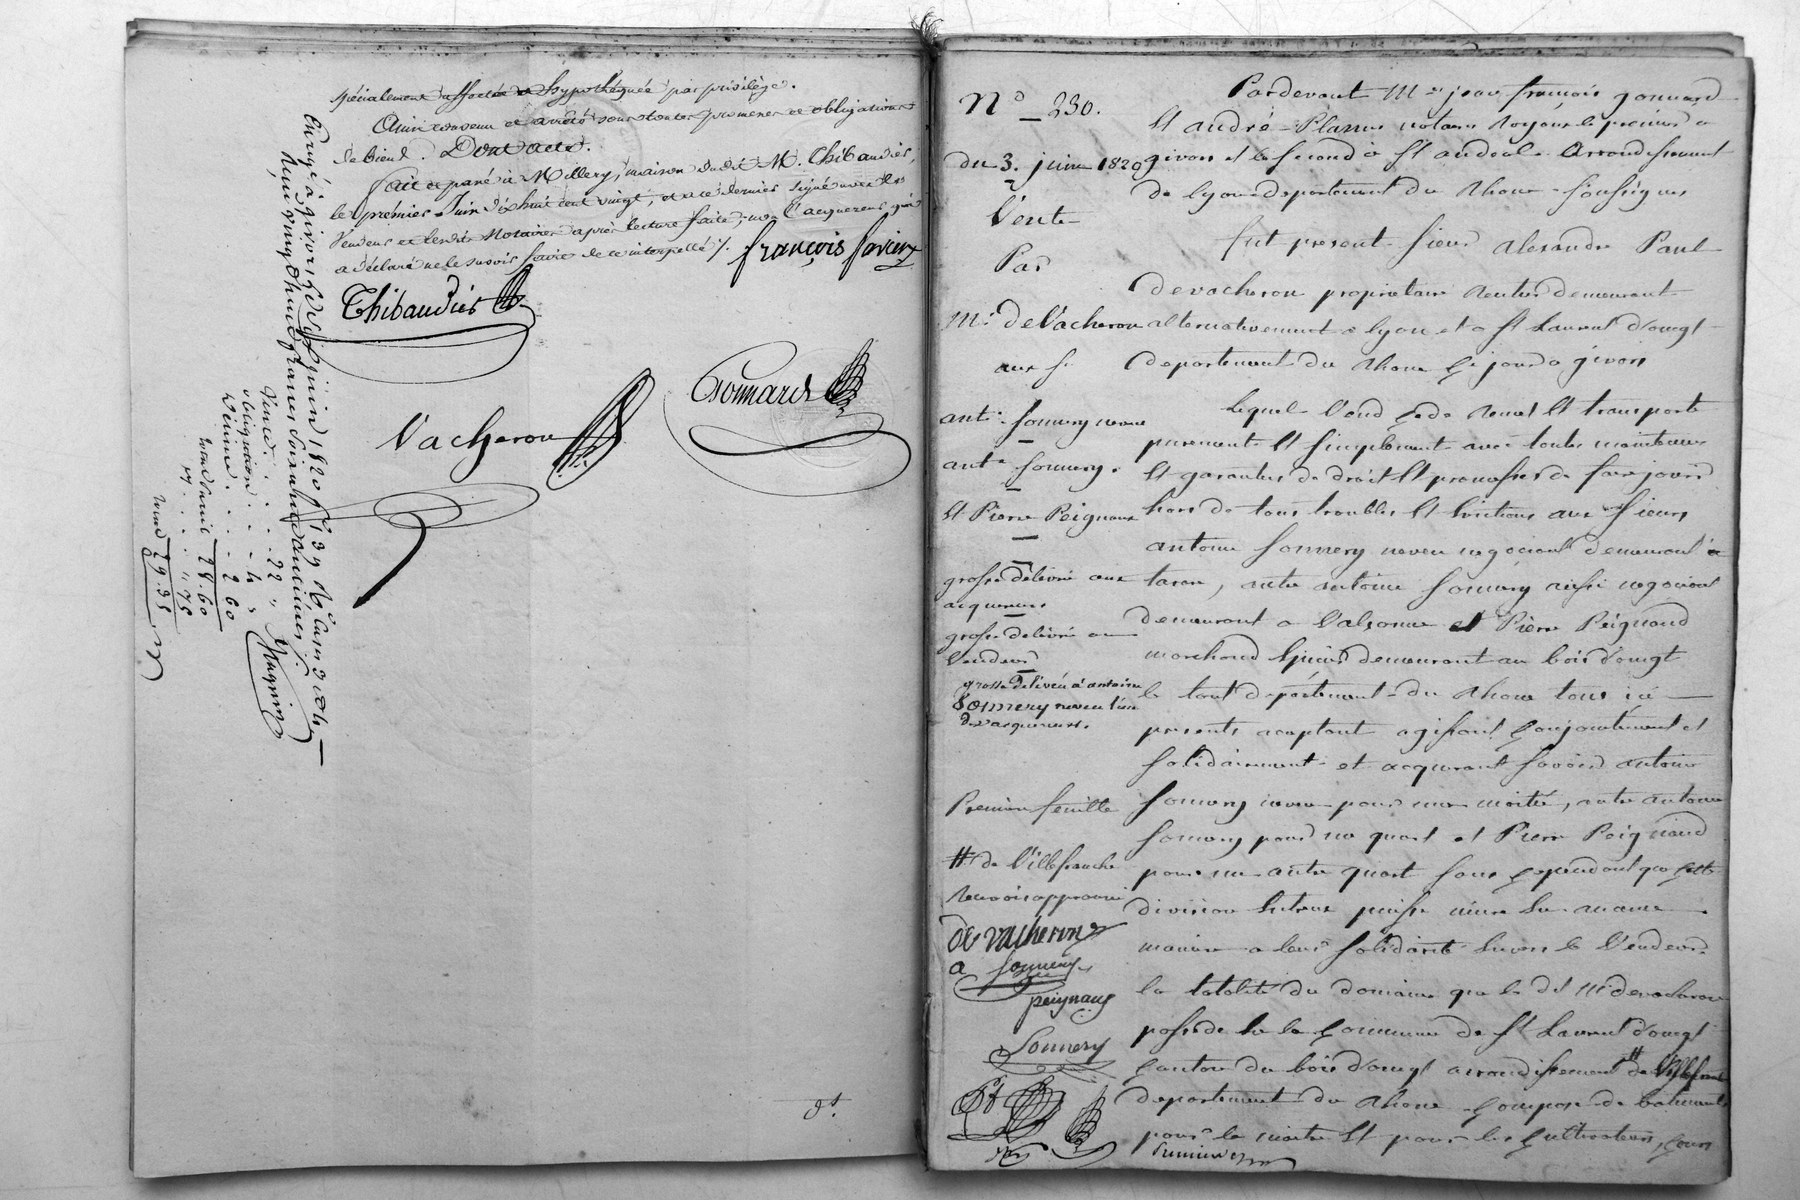 spécialement affectée et hypothéquée par privilège.
Ainsi convenu et arrêté sous toutes promesses et obligations
de bien et. Dont acte.
Fait et passé à Millery, maison dudit M. Thibaudier,
le premier Juin dix huit cent vingt, et a ce dernier signé avec les
Vendeur et lesdits Notaires après lecture faite, non l'acquereur qui
a déclaré ne le savoir faire de ce interpellé /.
françois
Thibaudier
Gonnard
Vacheron
Vente . . . 22 "
obligation . . 4 "
Décime . . . 2 60
28.60
. . . . " 75
29.35
dt.
N° 230.
du 3. juin 1820
Vente
Par
Mr. de Vacheron
aux srs
antne. Sonnery neveu
antne Sonnery.
et Pierre Peignaux
grosse délivré aux
acquereurs
grosse délivré au
Vendeur
grosse délivéé à antoine
Sonnery neveu l'un
des acquereurs.
Premiere feuille
# de Villefranche
renvoi approuvé
De vacheron
a Sonnery
peignaux
Sonnery
Pardevant Mes jean françois gonnard
et andré Plasson notaires royaux le premier a
givors et le second à St andéol. Arrondissement
de lyon departement du Rhone soussignés
fut present sieur alexandre Paul
devacheron proprietaire rentier demeurant
alternativement a lyon et a St Laurent d'oingt
departement du Rhone ce jour a givors
Lequel Vend cede remet et transporte
purement et simplement avec toutes maintenues
et garanties de droit et promesses de faire jouir
hors de tous troubles et evictions aux sieurs
antoine Sonnery neveu negociant demeurant a
tarare, autre antoine Sonnery aussi negociant
demeurant a Valsonne et Pierre Peignaud
marchand epicier demeurant au bois d'oingt
le tout departement du Rhone tous ici
presents acceptant agissant conjointement et
solidairement et acquerant savoir antoine
Sonnery neveu pour une moitié, autre antoine
Sonnery pour un quart et Pierre Peignaud
pour un autre quart sans cependant que cette
division entreux puisse nuire en aucune
maniere a leur solidarité envers le Vendeur
la totalité du domaine que le dit Mr devacheron
possede en la commune de St Laurent d'oingt
canton du bois d'oingt arrondissement # de Villefranche
departement du Rhone composé de batiments
pour le maitre et pour les cultivateurs, cours